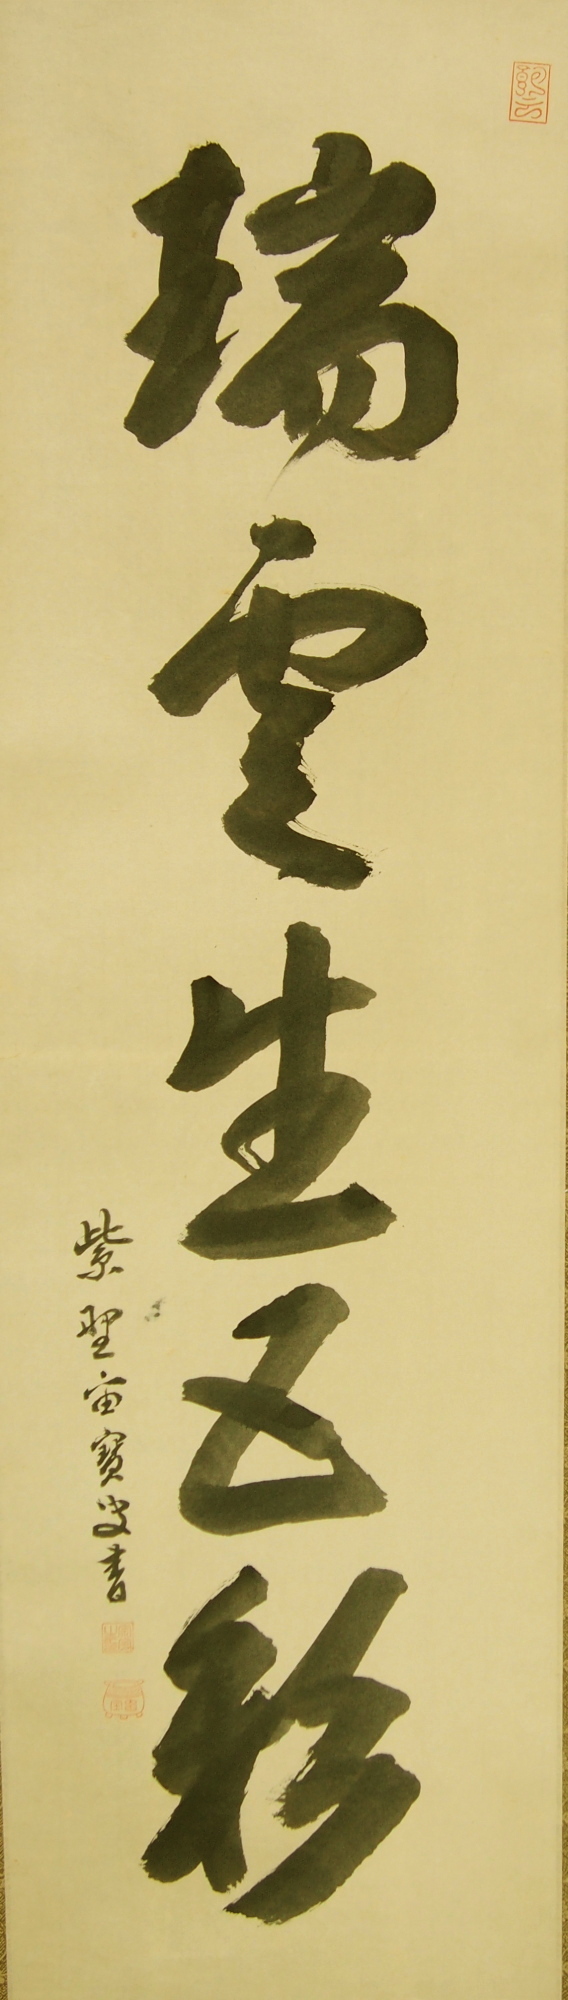 瑞雲生五彩
紫野宙寶叟書